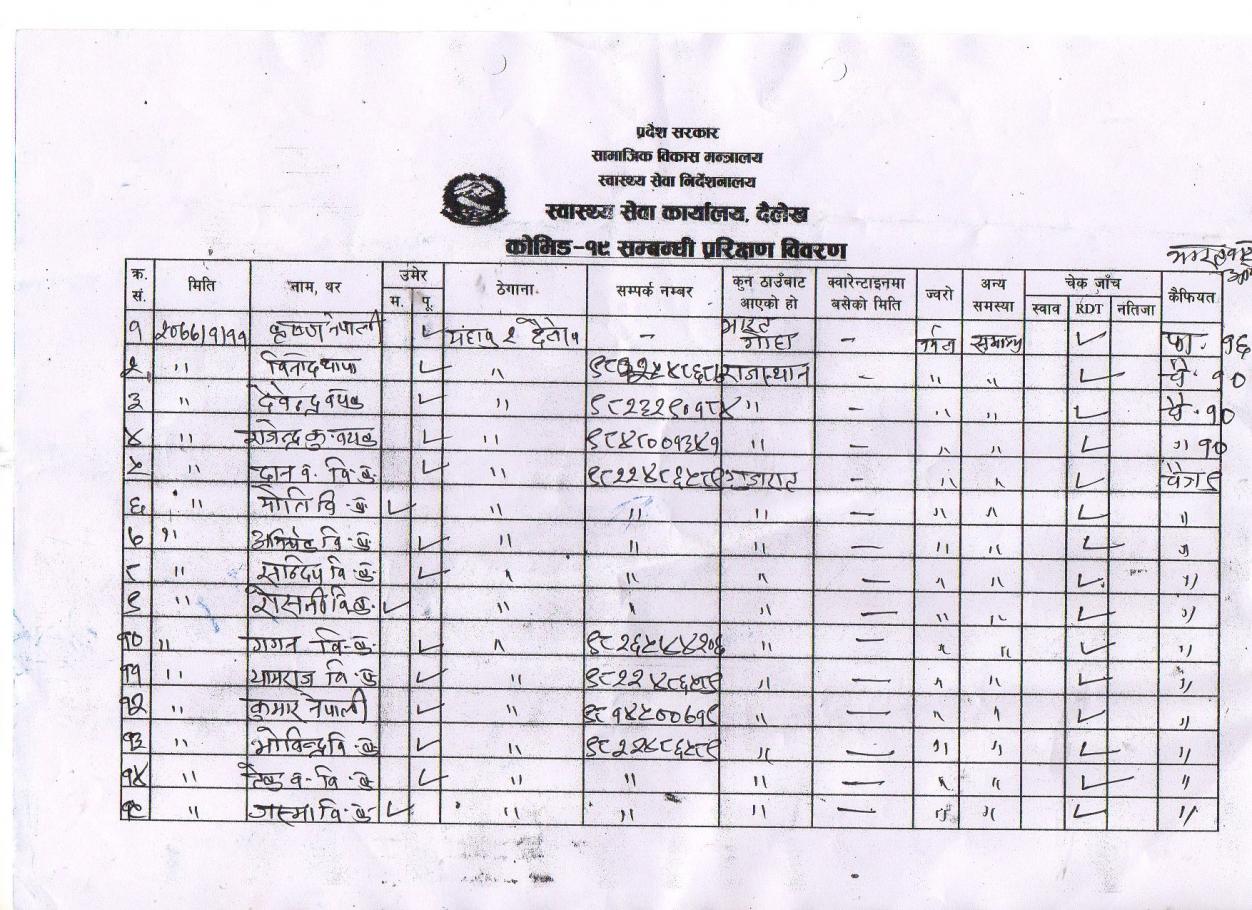 प्रदेश सरकार
सामाजिक विकास मन्त्रालय
स्वास्थ्य सेवा निर्देशनालय
स्वास्थ्य सेवा कार्यालय, दैलेख
कोभिड-१९ सम्बन्धी प्ररिक्षण विवरण
क्र. सं. मिति नाम, थर उमेर म. पू. ठेगाना सम्पर्क नम्बर कुन ठाउँबाट आएको हो क्वारेन्टाइनमा बसेको मिति ज्वरो अन्य समस्या चेक जाँच स्वाव RDT नंतिजा कैफियत
१ २०७७।१।११ कृष्ण नेपाली ✓ २ - भारत गोवा - ✓ फा. १६
२ " विनोद थापा ✓ " राजस्थान - " " ✓ चै. १०
३ " देवेन्द्र ✓ " ९८२३२९०१८४ " - " " ✓ चै. १०
४ " राजेन्द्र कु. ✓ " ९८४८००१३४१ " - " " ✓ " १०
५ " दान व. वि.क. ✓ " ९८२२४८६५८९ गुजरात - " " ✓ चैत्र ९
६ " मोति वि.क. ✓ " " " - " " ✓ "
७ " वि.क. ✓ " " " - " " ✓ "
८ " सन्दिप वि.क. ✓ " " " - " " ✓ "
९ " रोसनी वि.क. ✓ " " " - " " ✓ "
१० " गगन वि.क. ✓ " " - " " ✓ "
११ " यामराज वि.क. ✓ " ९८२२४८६५८९ " - " " ✓ "
१२ " कुमार नेपाली ✓ " ९८१४५००७१९ " - " " ✓ "
१३ " वि.क. ✓ " ९८२२४८६५८९ " - " " ✓ "
१४ " व. वि.क. ✓ " " " - " " ✓ "
" वि.क. ✓ " " " - " " ✓ "